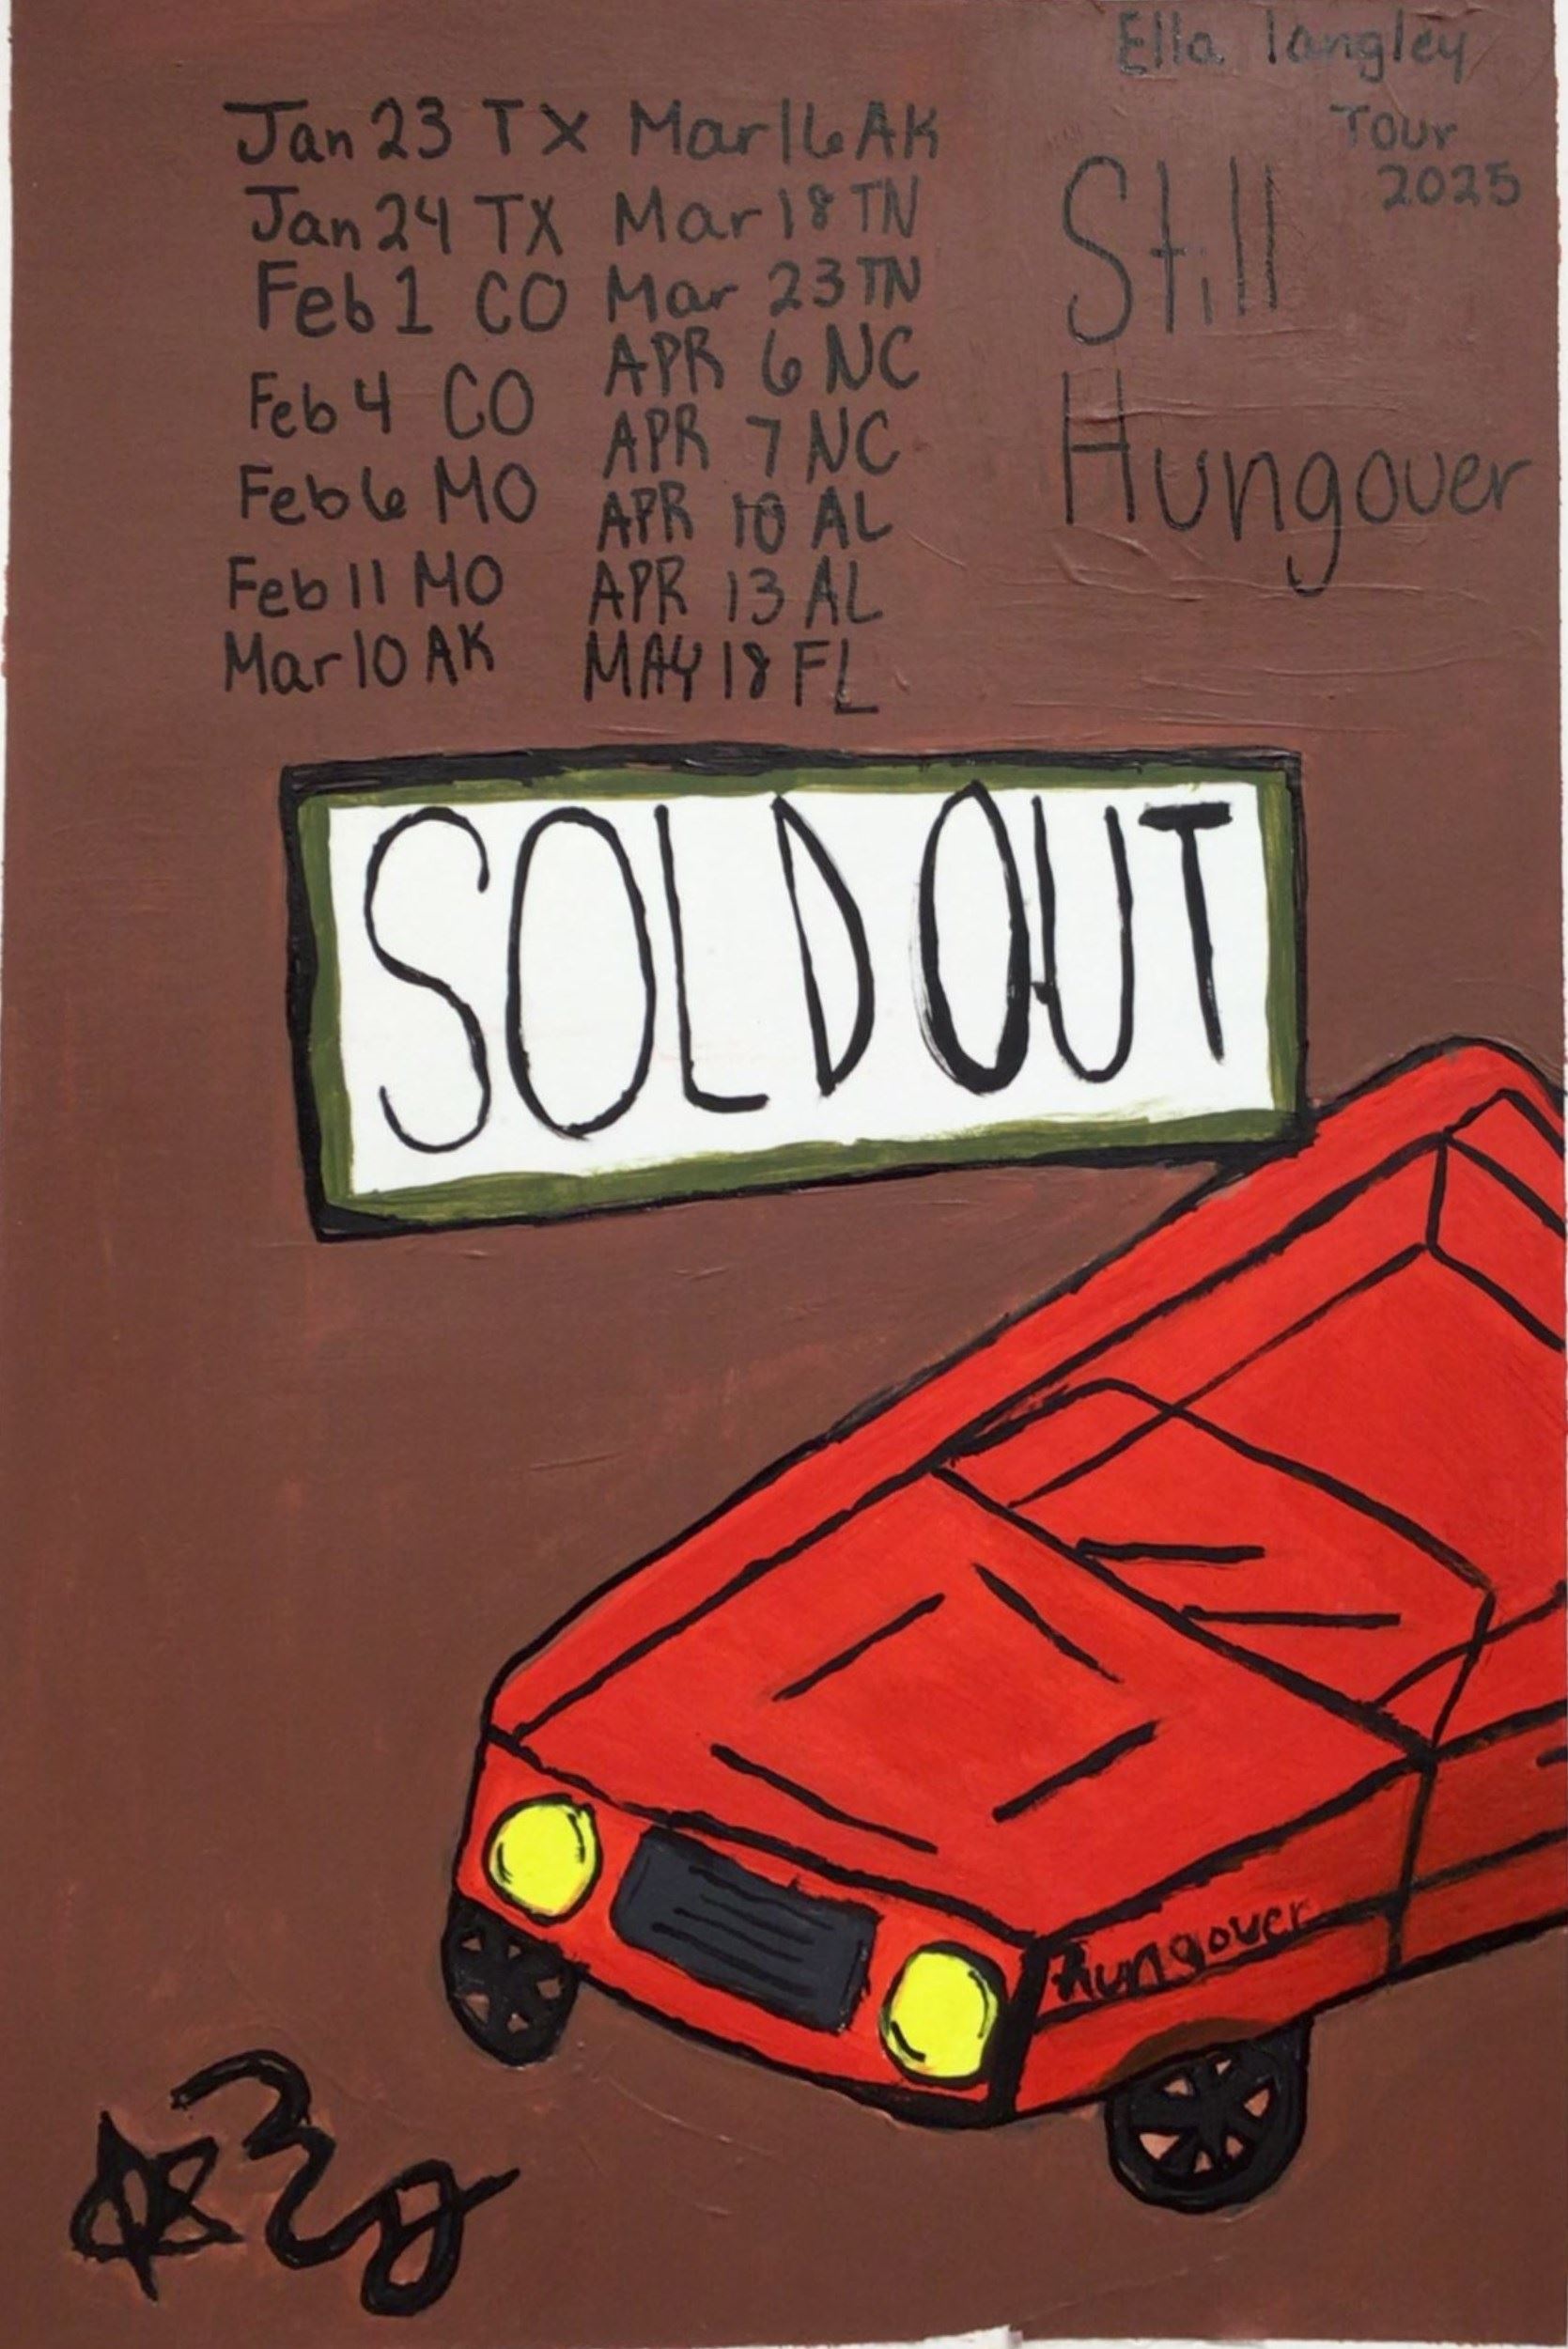 Ella langley
Tour
2025
Still
Hungover
Jan 23 TX
Jan 24 TX
Feb 1 CO
Feb 4 CO
Feb 6 MO
Feb 11 MO
Mar 10 AK
Mar 16 AK
Mar 18 TN
Mar 23 TN
APR 6 NC
APR 7 NC
APR 10 AL
APR 13 AL
MAY 18 FL
SOLD OUT
hungover